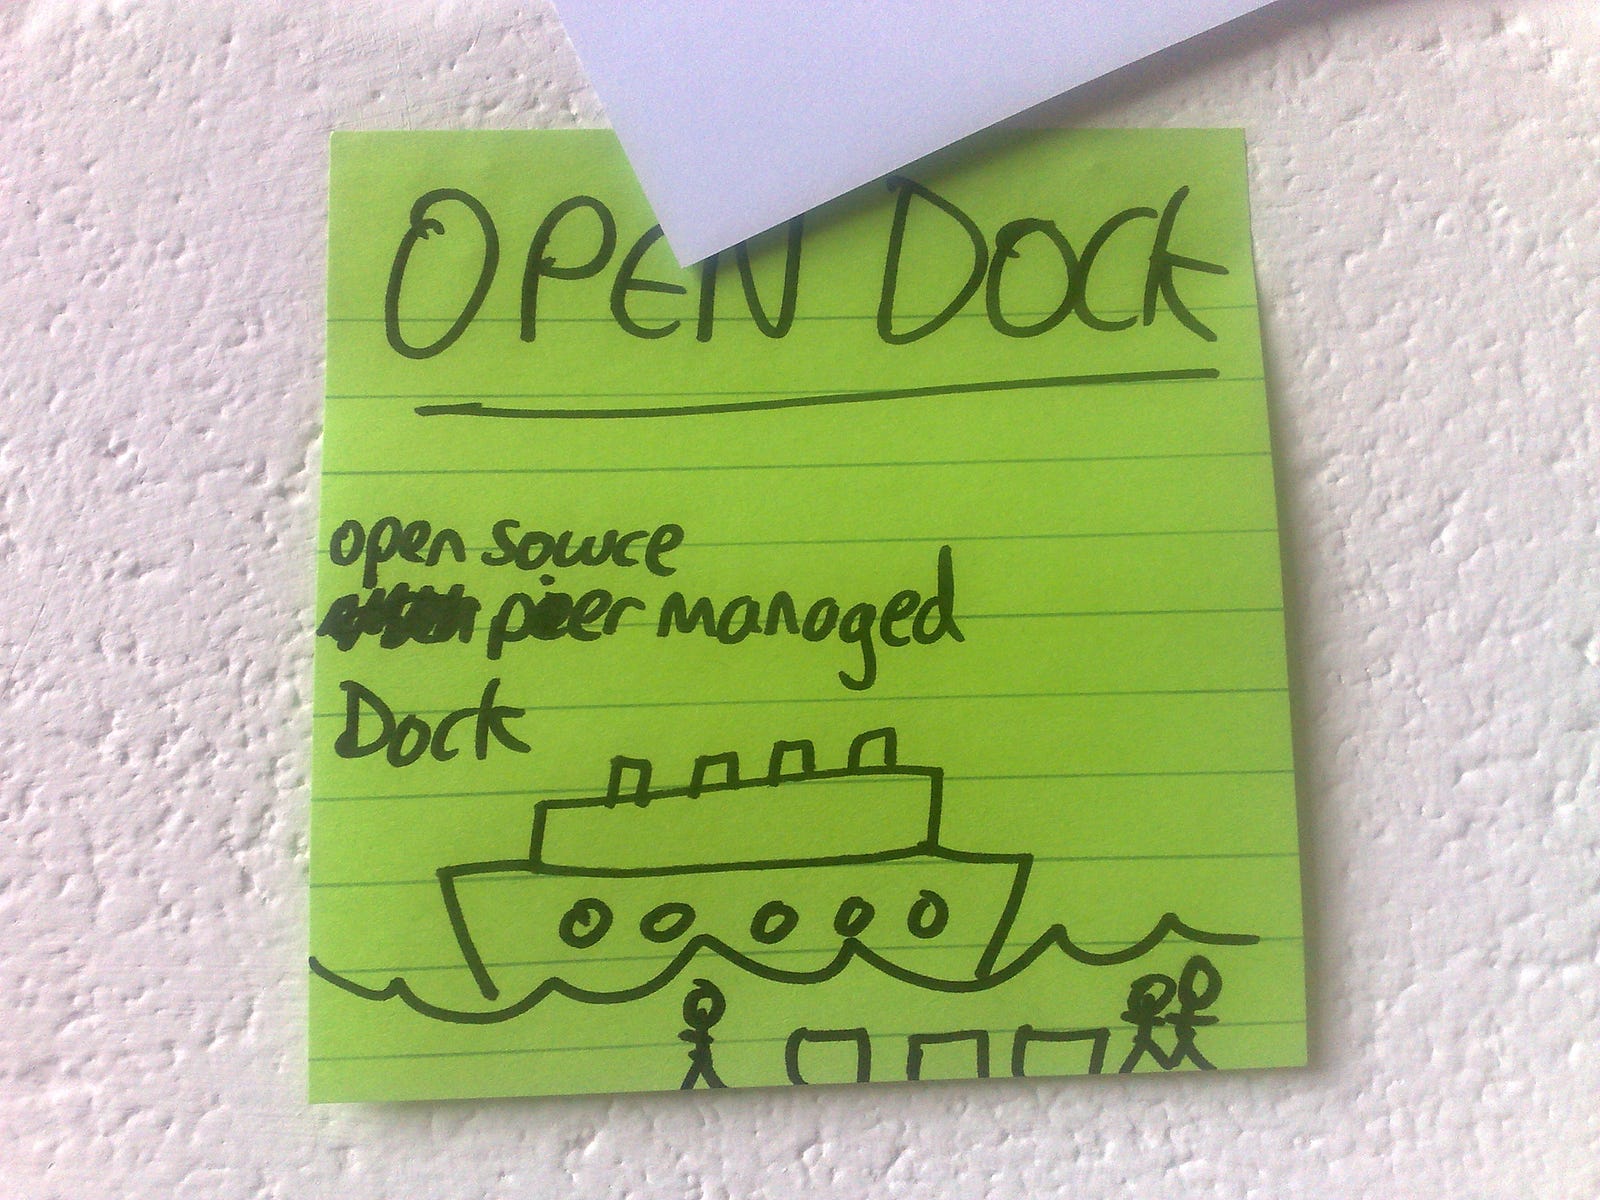 OPEN DOCK
open source
peer managed
Dock